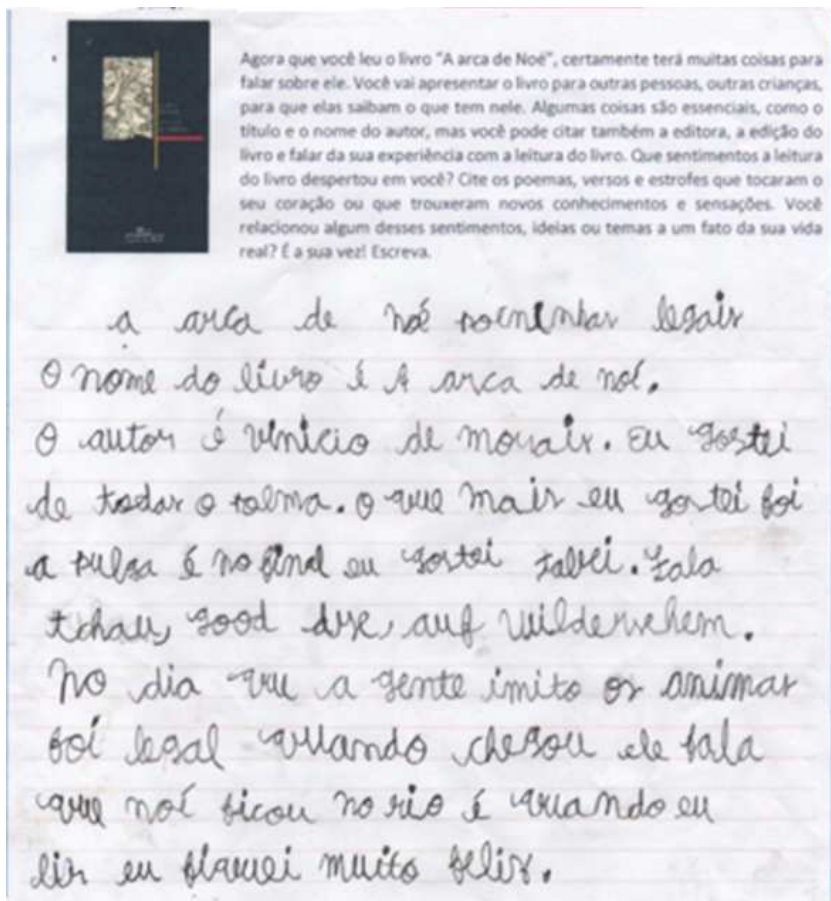 Agora que você leu o livro "A arca de Noé", certamente terá muitas coisas para
falar sobre ele. Você vai apresentar o livro para outras pessoas, outras crianças,
para que elas saibam o que tem nele. Algumas coisas são essenciais, como o
título e o nome do autor, mas você pode citar também a editora, a edição do
livro e falar da sua experiência com a leitura do livro. Que sentimentos a leitura
do livro despertou em você? Cite os poemas, versos e estrofes que tocaram o
seu coração ou que trouxeram novos conhecimentos e sensações. Você
relacionou algum desses sentimentos, ideias ou temas a um fato da sua vida
real? É a sua vez! Escreva.
a arca de noé legais
O nome do livro é A arca de noé.
O autor é vinicio de morais. Eu gostei
de todas o poema. o que mais eu gostei foi
a pulga é no final eu gostei. fala
tchau, good, auf
No dia que a gente imito os animas
foi legal quando chegou ele fala
que noé ficou no rio é quando eu
lin eu muito felis.